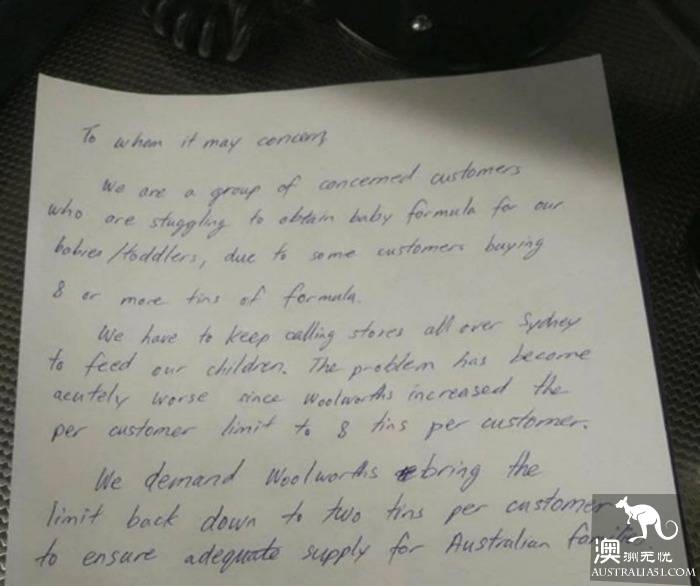 To whom it may concern
We are a group of concerned customers
who are stuggling to obtain baby formula for our
babies/toddlers, due to some customers buying
8 or more tins of formula.
We have to keep calling stores all over Sydney
to feed our children. The problem has become
acutely worse since Woolworths increased the
per customer limit to 8 tins per customer.
We demand Woolworths bring the
limit back down to two tins per customer
to ensure adequate supply for Australian
澳洲无忧
AUSTRALIA51.COM